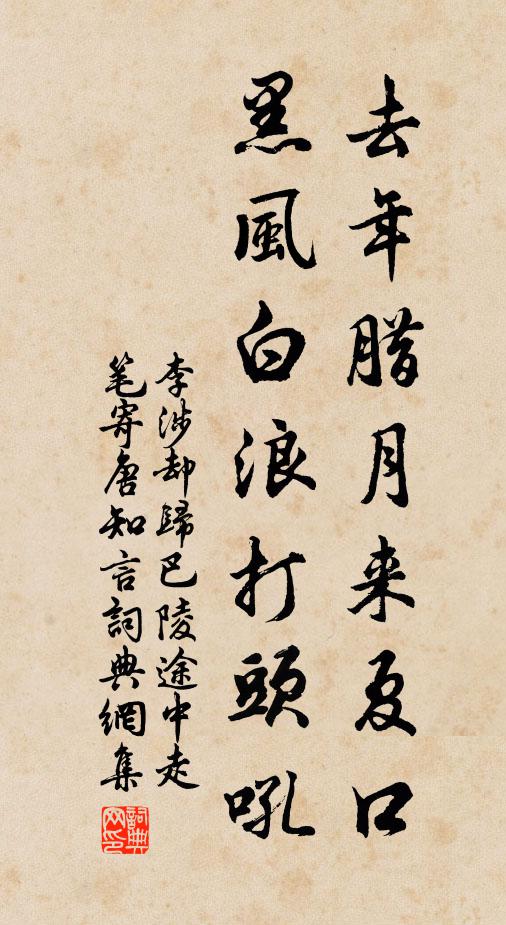 去年腊月来夏口
黑風白浪打頭吼
李涉却歸巴陵途中走
笔寄唐知言詞典網集
詞典网印